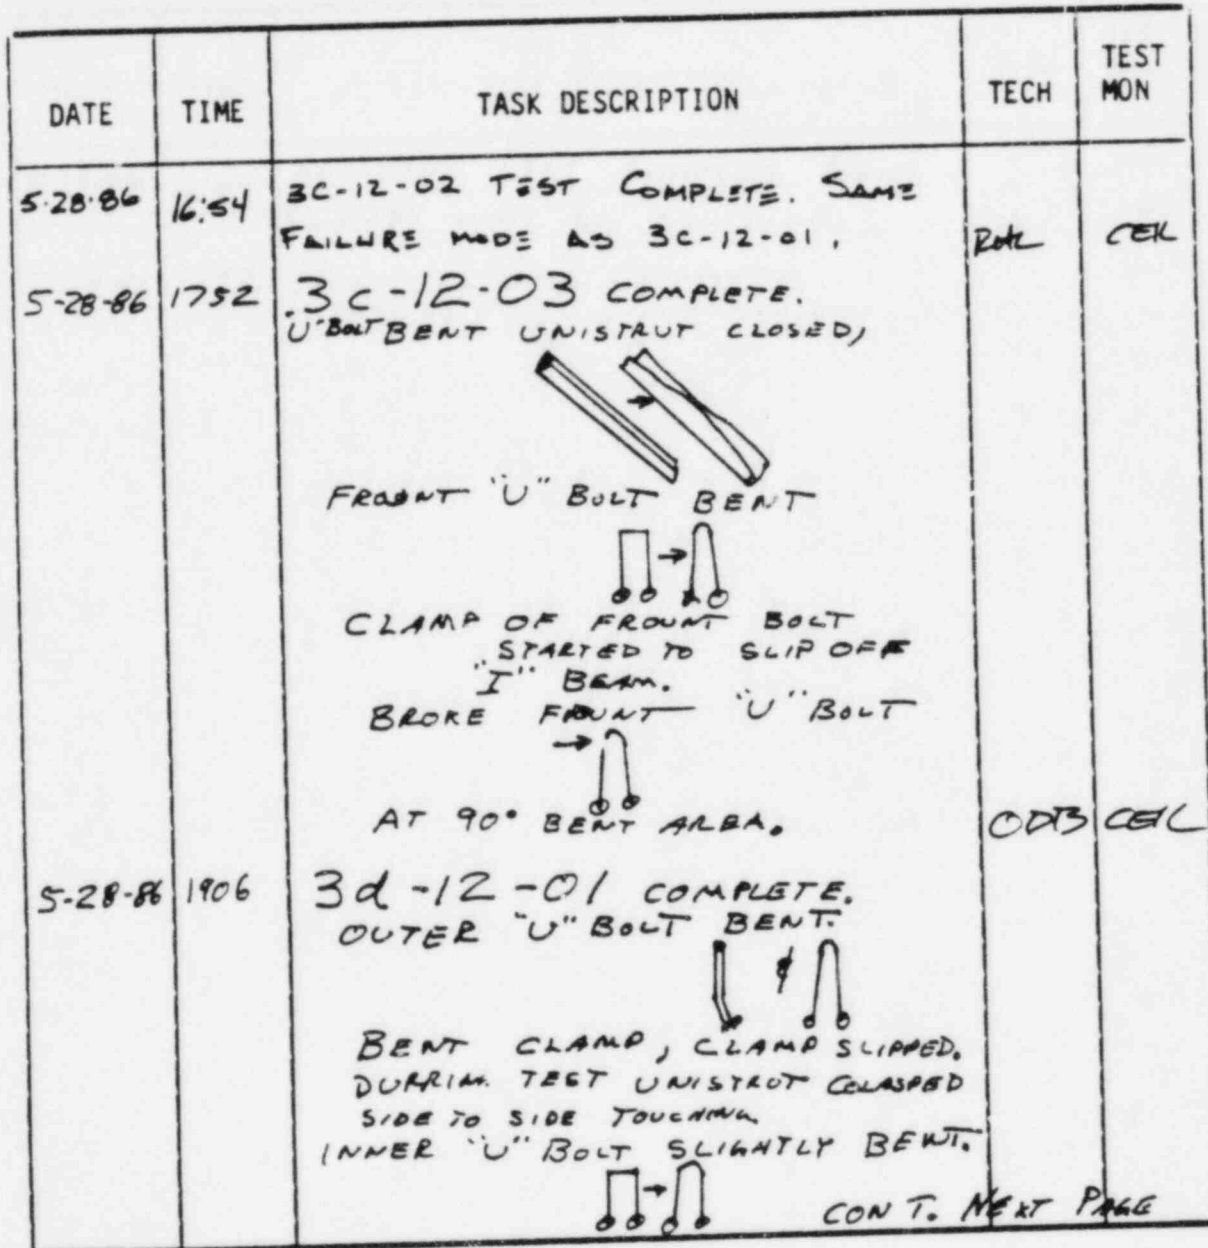 DATE TIME TASK DESCRIPTION TECH TEST MON
5-28-86 16:54 3C-12-02 TEST COMPLETE. SAME
FAILURE MODE AS 3C-12-01. CEK
5-28-86 1752 3C-12-03 COMPLETE.
U"BOLT BENT UNISTRUT CLOSED,
"U" BOLT BENT
CLAMP OF FROUNT BOLT
STARTED TO SLIP OFF
"I" BEAM.
BROKE FROUNT "U" BOLT
AT 90° BENT AREA. ODB CEK
5-28-86 1906 3d-12-01 COMPLETE.
OUTER "U" BOLT BENT.
BENT CLAMP, CLAMP SLIPPED.
TEST UNISTRUT COLASPED
SIDE TO SIDE TOUCHING
INNER "U" BOLT SLIGHTLY BENT.
CONT. NEXT PAGE